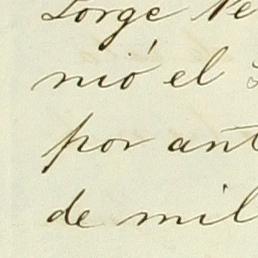 Jorge Ne
nió el
por ant
de mil